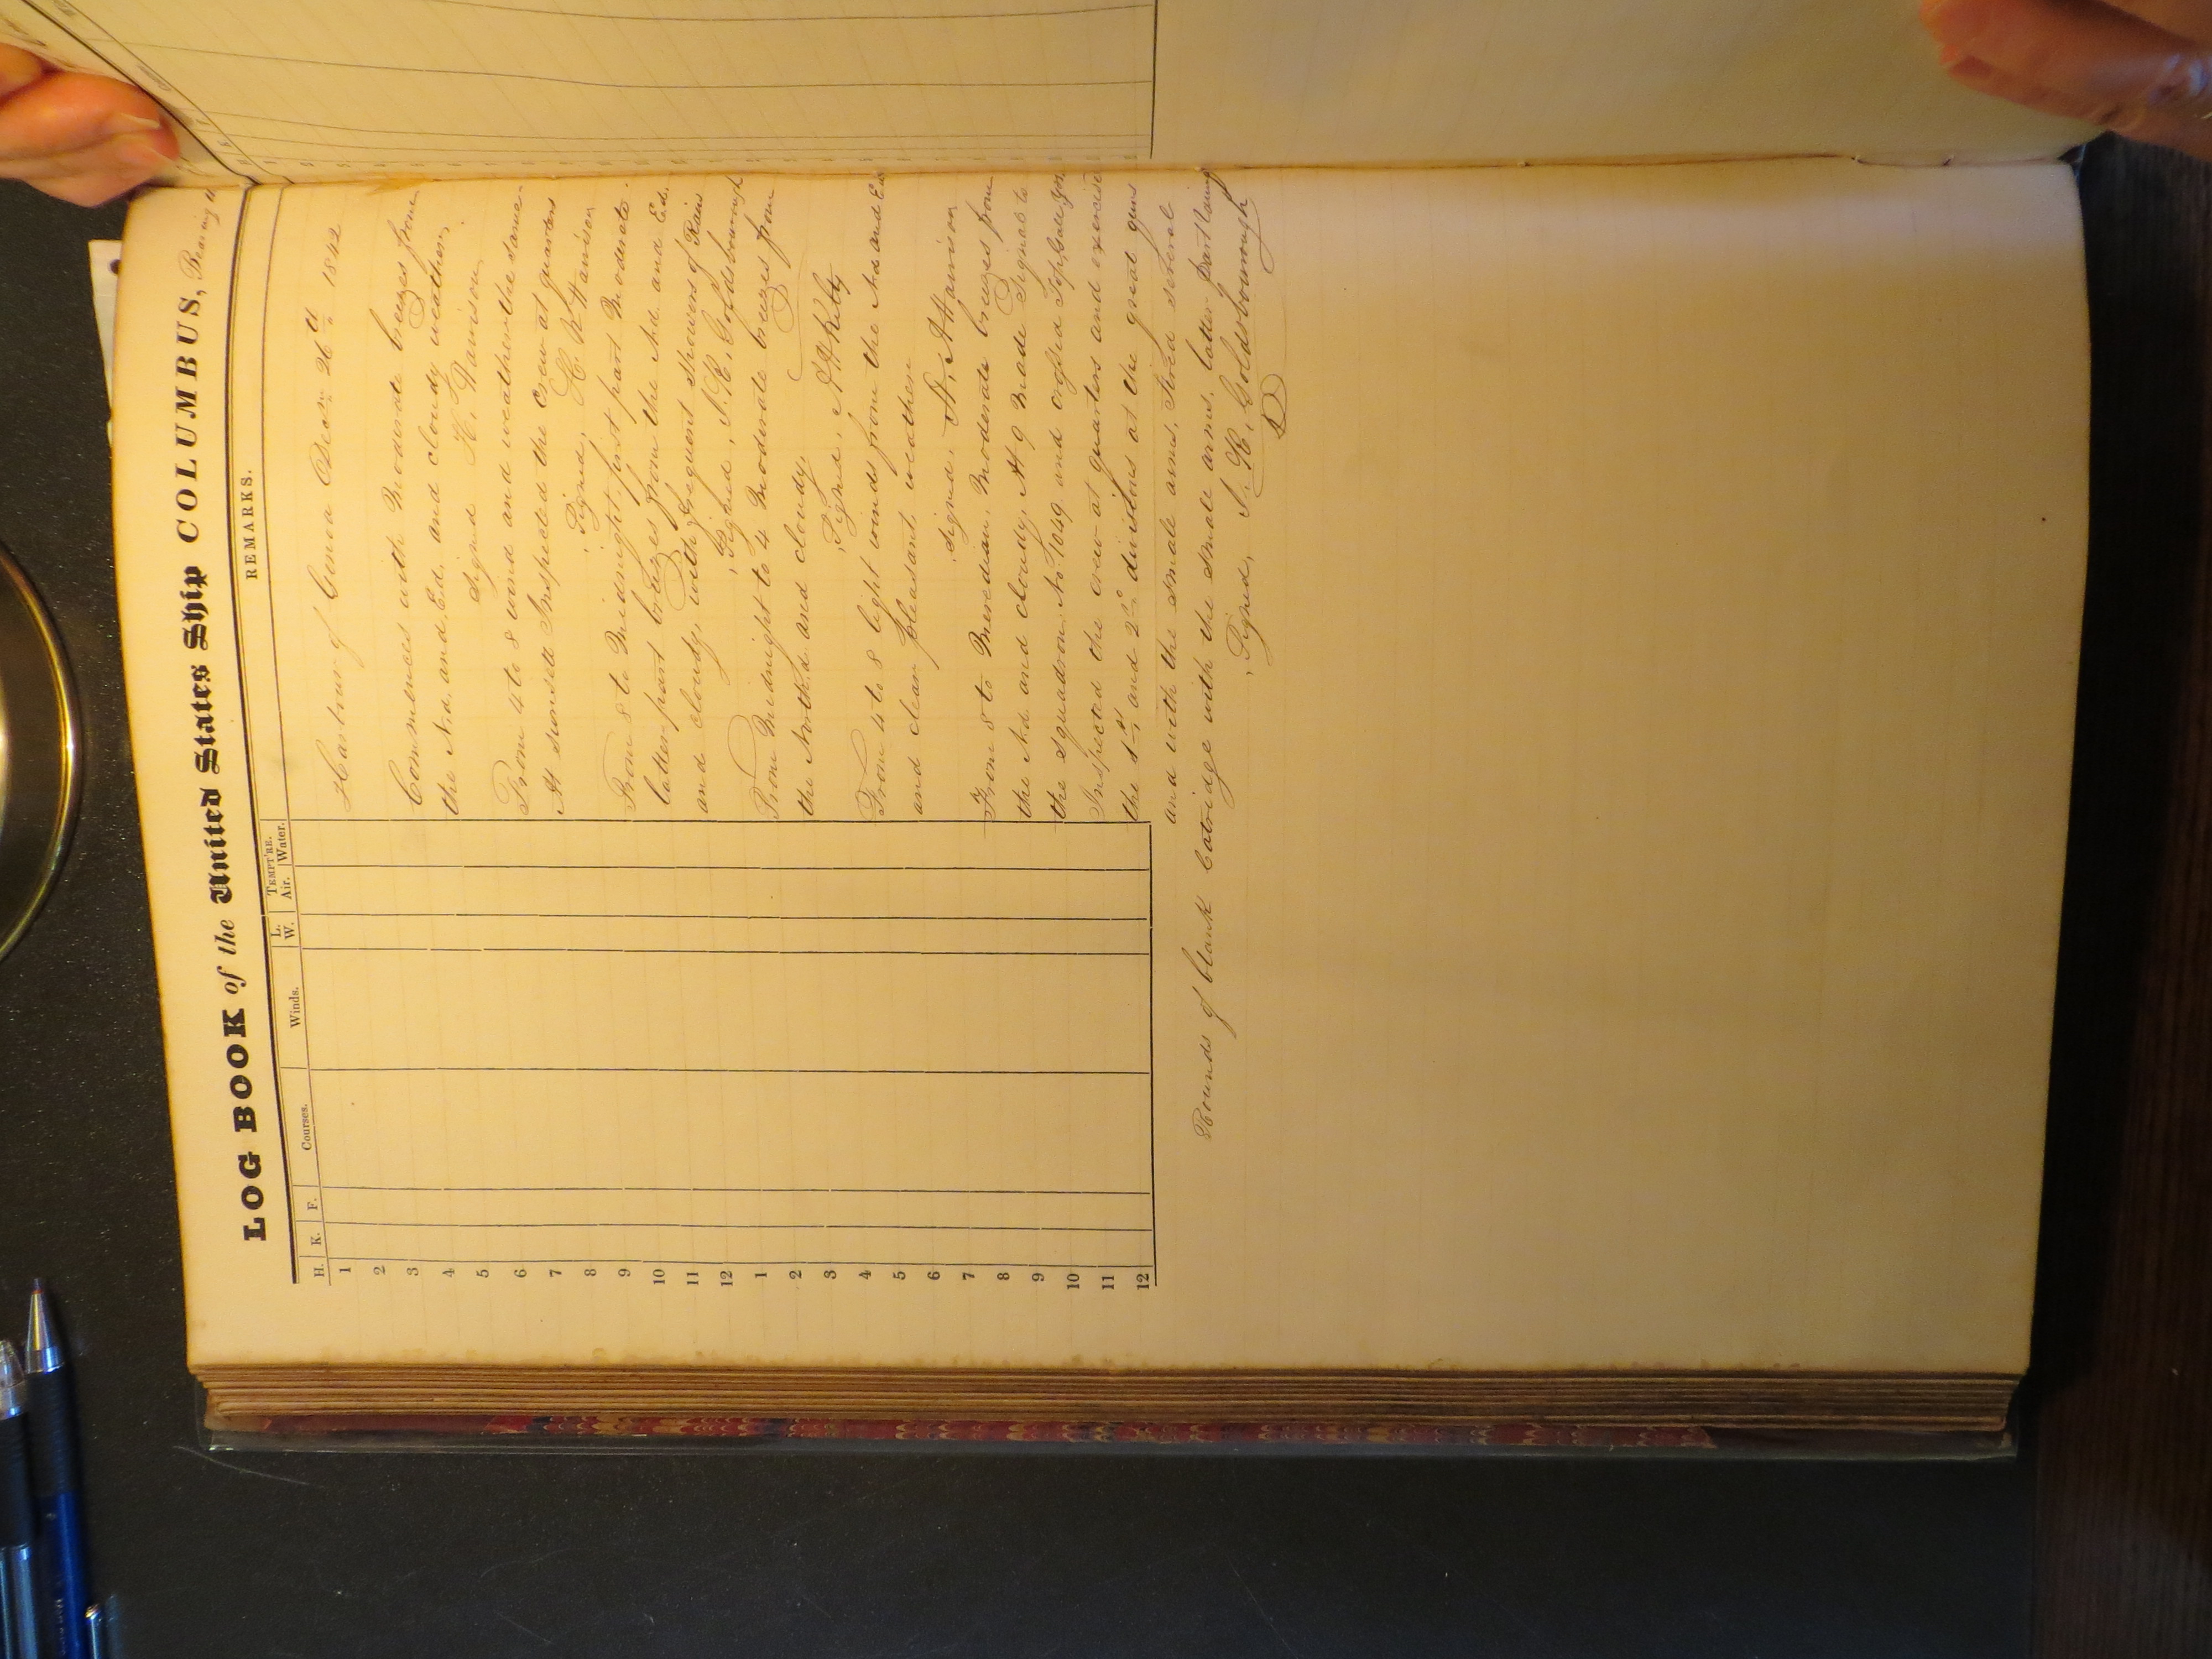 LOG BOOK of the United States Ship COLUMBUS, Bearing
H. K. F. Courses. Winds. L. W. TEMPT'RE. Air. Water. REMARKS.
Harbour of Genoa Decem 26th 1842
Commences with Moderate breezes from
the Nd. and Ed. and cloudy weather.
Signed H. Harrison
From 4 to 8 wind and weather the same
At sunsett Inspected the Crew at quarters
Signed,
Harrison
From 8 to Midnight first part Moderate
latter part breezes from the Nd. and Ed.
and cloudy, with frequent showers of Rain
Signed, Goldsbourough
From Midnight to 4 Moderate breezes from
the North.d. and cloudy.
Signed, Kilty
From 4 to 8 light winds from the Nd and Ed
and clear pleasant weather
Signed, Harrison
From 8 to Meredian, Moderate breezes from
the Nd. and cloudy, At 9 made Signal to
the squadron No. 1049 and crossed Topgall
Inspected the crew at quarters and exercise
the 1st and 2d divisions at the great guns
and with the small arms, fired several
Rounds of blank Catridge with the small arms, latter part
Signed, Goldsbourough
1
2
3
4
5
6
7
8
9
10
11
12
1
2
3
4
5
6
7
8
9
10
11
12